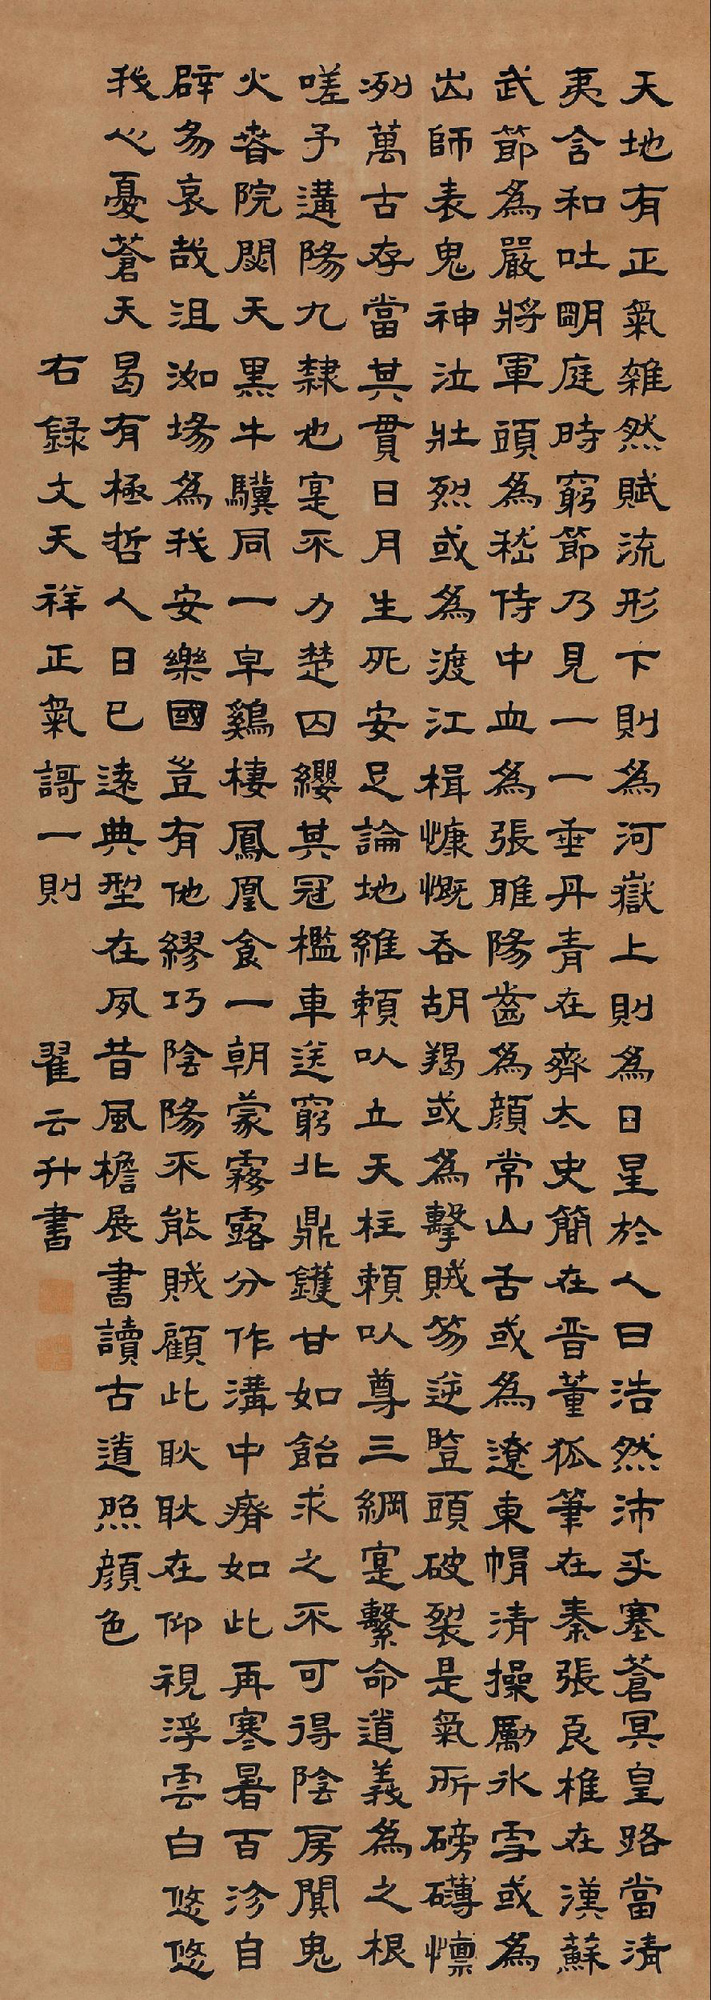 天地有正氣雜然賦流形下則為河嶽上則為日星於人曰浩然沛乎塞蒼冥皇路當清
夷含和吐明庭時窮節乃見一一垂丹青在齊太史簡在晉董狐筆在秦張良椎在漢蘇
武節為嚴將軍頭為嵇侍中血為張睢陽齒為顏常山舌或為遼東帽清操勵冰雪或為
出師表鬼神泣壯烈或為渡江楫慷慨吞胡羯或為擊賊笏逆豎頭破裂是氣所磅礴懍
冽萬古存當其貫日月生死安足論地維賴以立天柱賴以尊三綱寔繫命道義為之根
嗟予遘陽九隸也寔不力楚囚纓其冠檻車送窮北鼎鑊甘如飴求之不可得陰房闃鬼
火春院閟天黑牛驥同一皁鷄棲鳳凰食一朝蒙霧露分作溝中瘠如此再寒暑百沴自
辟易哀哉沮洳場為我安樂國豈有他繆巧陰陽不能賊顧此耿耿在仰視浮雲白悠悠
我心憂蒼天曷有極哲人日已遠典型在夙昔風檐展書讀古道照顏色
右錄文天祥正氣謌一則 翟云升書